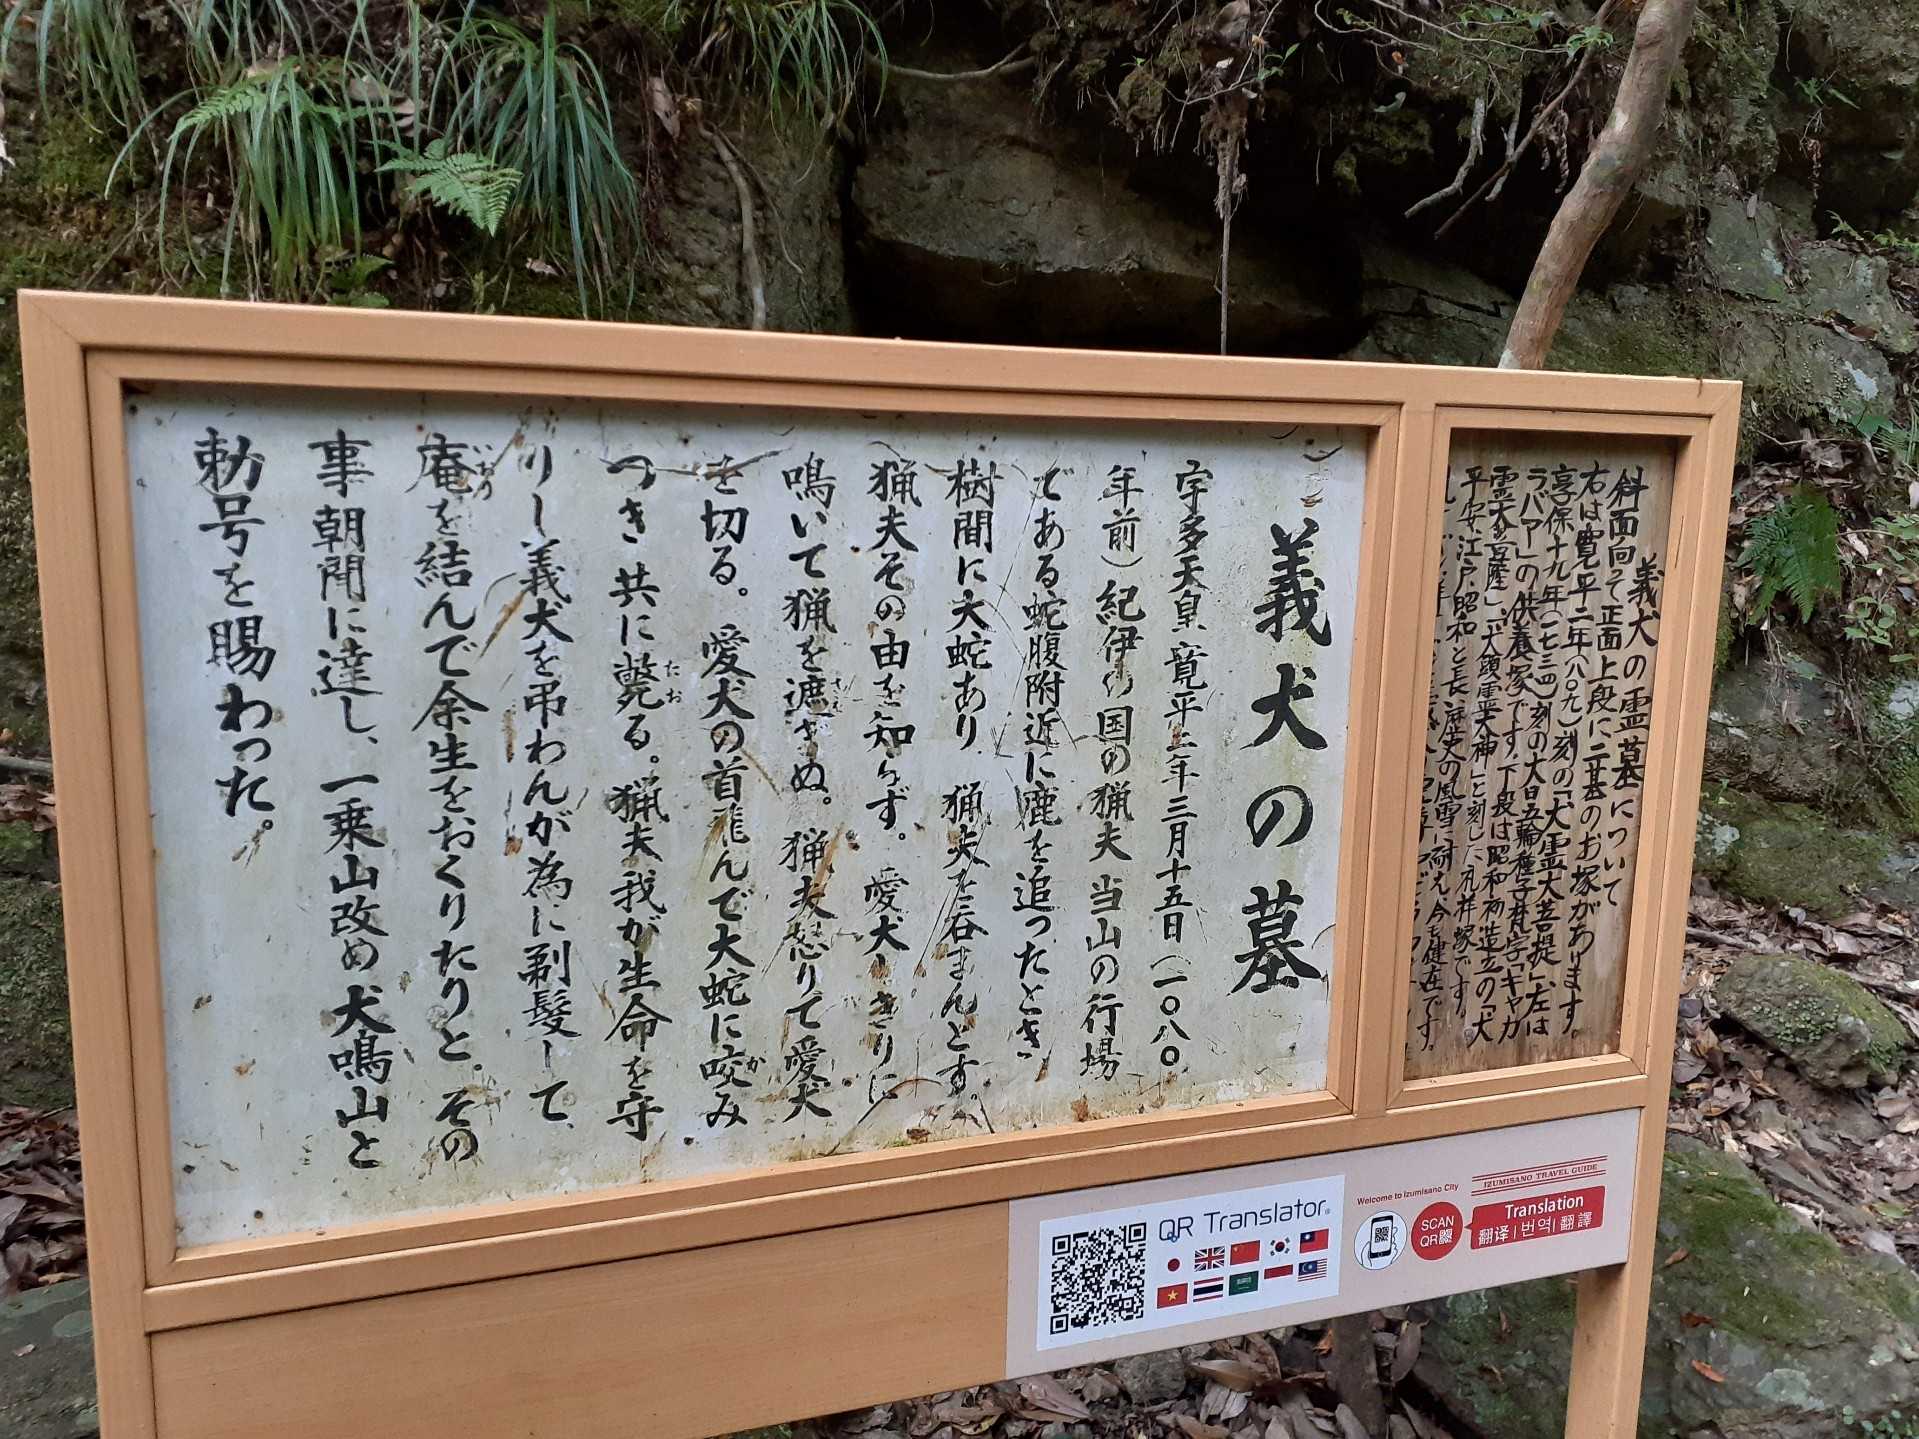 義犬の霊墓について
斜面向って正面上段に二基のお塚があります。
右は寛平二年(八〇九)刻の「犬霊大菩提」左は
享保十九年(一七三四)刻の大日五輪種子梵字「キャカ
ラバア」の供養塚です。下段は昭和初造立の「犬
霊大菩薩」、「犬頭霊大神」と刻した礼拝塚です。
平安、江戸、昭和と長い歴史の風雪に耐え、今も健在です。
義犬の墓
宇多天皇寛平二年三月十五日(一〇八〇
年前)紀伊の国の猟夫当山の行場
である蛇腹附近に鹿を追ったとき
樹間に大蛇あり猟夫を呑まんとす。
猟夫その由を知らず。愛犬しきりに
鳴いて猟を遮さえぬ。猟夫怒りて愛犬
を切る。愛犬の首飛んで大蛇に咬かみ
つき共に斃たおる。猟夫我が生命を守
りし義犬を弔わんが為に剃髪して、
庵いおりを結んで余生をおくりたりと。その
事朝聞に達し、一乗山改め犬鳴山と
勅号を賜わった。
QR Translator
Welcome to Izumisano City
SCAN
QR
IZUMISANO TRAVEL GUIDE
Translation
翻译|번역|翻譯